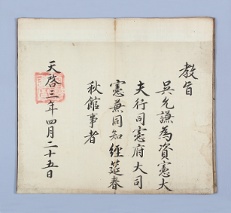 教旨
吳允謙為資憲大
夫行司憲府大司
憲兼同知經筵春
秋館事者
天啓三年四月二十五日